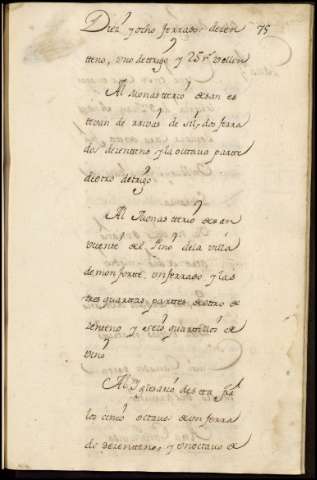 Diez y ocho ferrados de zen 75
tteno, uno de trigo y 25 r.s vellon
Al Monastterio de san es
tevan de arrivas de sil, dos ferra
dos de zentteno y la octava partte
de otro de trigo
Al Monastterio de san
Vizente del Pino de la villa
de monfortte, un ferrado y las
tres quarttas parttes de otro de
zentteno y seis quarttillos de
vino
Al Yglesario de estta
los cinco octavos de un ferra
do de zentteno, y un octavo de